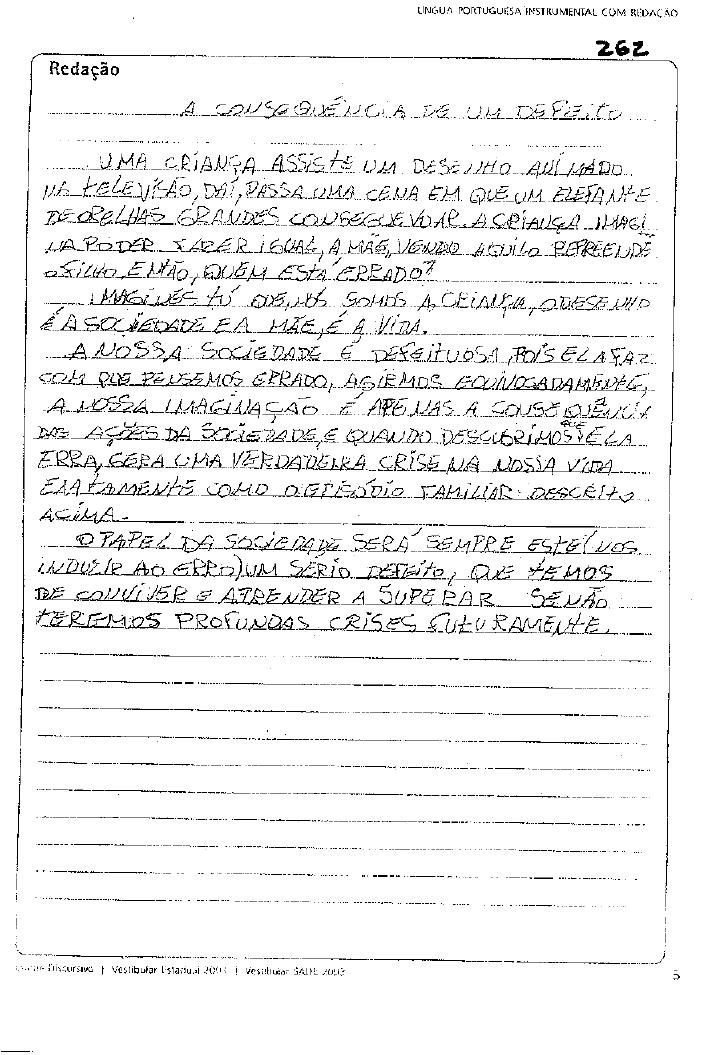 LÍNGUA PORTUGUESA INSTRUMENTAL COM REDAÇÃO
262
Redação
A CONSEQUÊNCIA DE UM DEFEITO
UMA CRIANÇA ASSISTE UM DESENHO ANIMADO
NA TELEVISÃO, DAÍ, PASSA UMA CENA EM QUE UM ELEFANTE
DE ORELHAS GRANDES CONSEGUE VOAR. A CRIANÇA IMAGI
NA PODER FAZER IGUAL, A MÃE, VENDO AQUILO REPREENDE
O FILHO, ENTÃO, QUEM ESTÁ ERRADO?
IMAGINES TÚ QUE, NÓS SOMOS A CRIANÇA, O DESENHO
É A SOCIEDADE E A MÃE, É A VIDA.
A NOSSA SOCIEDADE É DEFEITUOSA, POIS ELA FAZ
COM QUE PENSEMOS ERRADO, AGIEMOS EQUIVOCADAMENTE,
A NOSSA IMAGINAÇÃO É APENAS A CONSEQUÊNCIA
DAS AÇÕES DA SOCIEDADE, E QUANDO DESCUBRIMOS QUE ELA
ERRA, GERA UMA VERDADEIRA CRISE NA NOSSA VIDA
EXATAMENTE COMO O EPISÓDIO FAMILIAR DESCRITO
ACIMA.
O PAPEL DA SOCIEDADE SERÁ SEMPRE ESTE (NOS
INDUZIR AO ERRO) UM SÉRIO DEFEITO, QUE TEMOS
DE CONVIVER E APRENDER A SUPERAR SENÃO
TEREMOS PROFUNDAS CRISES FUTURAMENTE.
Discursivo | Vestibular Estadual 2003 | Vestibular SADE 2003
5